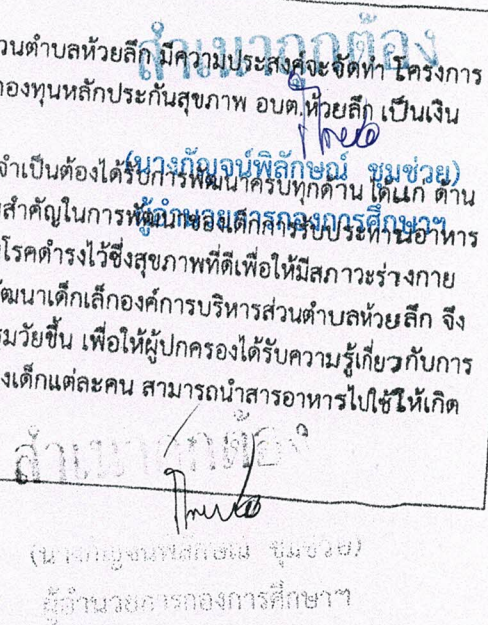 สำเนาถูกต้อง
วนตำบลห้วยลึก มีความประสงค์จะจัดทำ โครงการ
กองทุนหลักประกันสุขภาพ อบต.ห้วยลึก เป็นเงิน
(นางกัญจน์พิลักษณ์ ชุมช่วย)
จำเป็นต้องได้รับการพัฒนาครบทุกด้าน ได้แก่ ด้าน
ผู้อำนวยการกองการศึกษาฯ
สำคัญในการพัฒนาของเด็กการรับประทานอาหาร
โรคดำรงไว้ซึ่งสุขภาพที่ดีเพื่อให้มีสภาวะร่างกาย
ัฒนาเด็กเล็กองค์การบริหารส่วนตำบลห้วยลึก จึง
มวัยขึ้น เพื่อให้ผู้ปกครองได้รับความรู้เกี่ยวกับการ
งเด็กแต่ละคน สามารถนำสารอาหารไปใช้ให้เกิด
สำเนาถูกต้อง
(นางกัญจน์พิลักษณ์ ชุมช่วย)
ผู้อำนวยการกองการศึกษาฯ